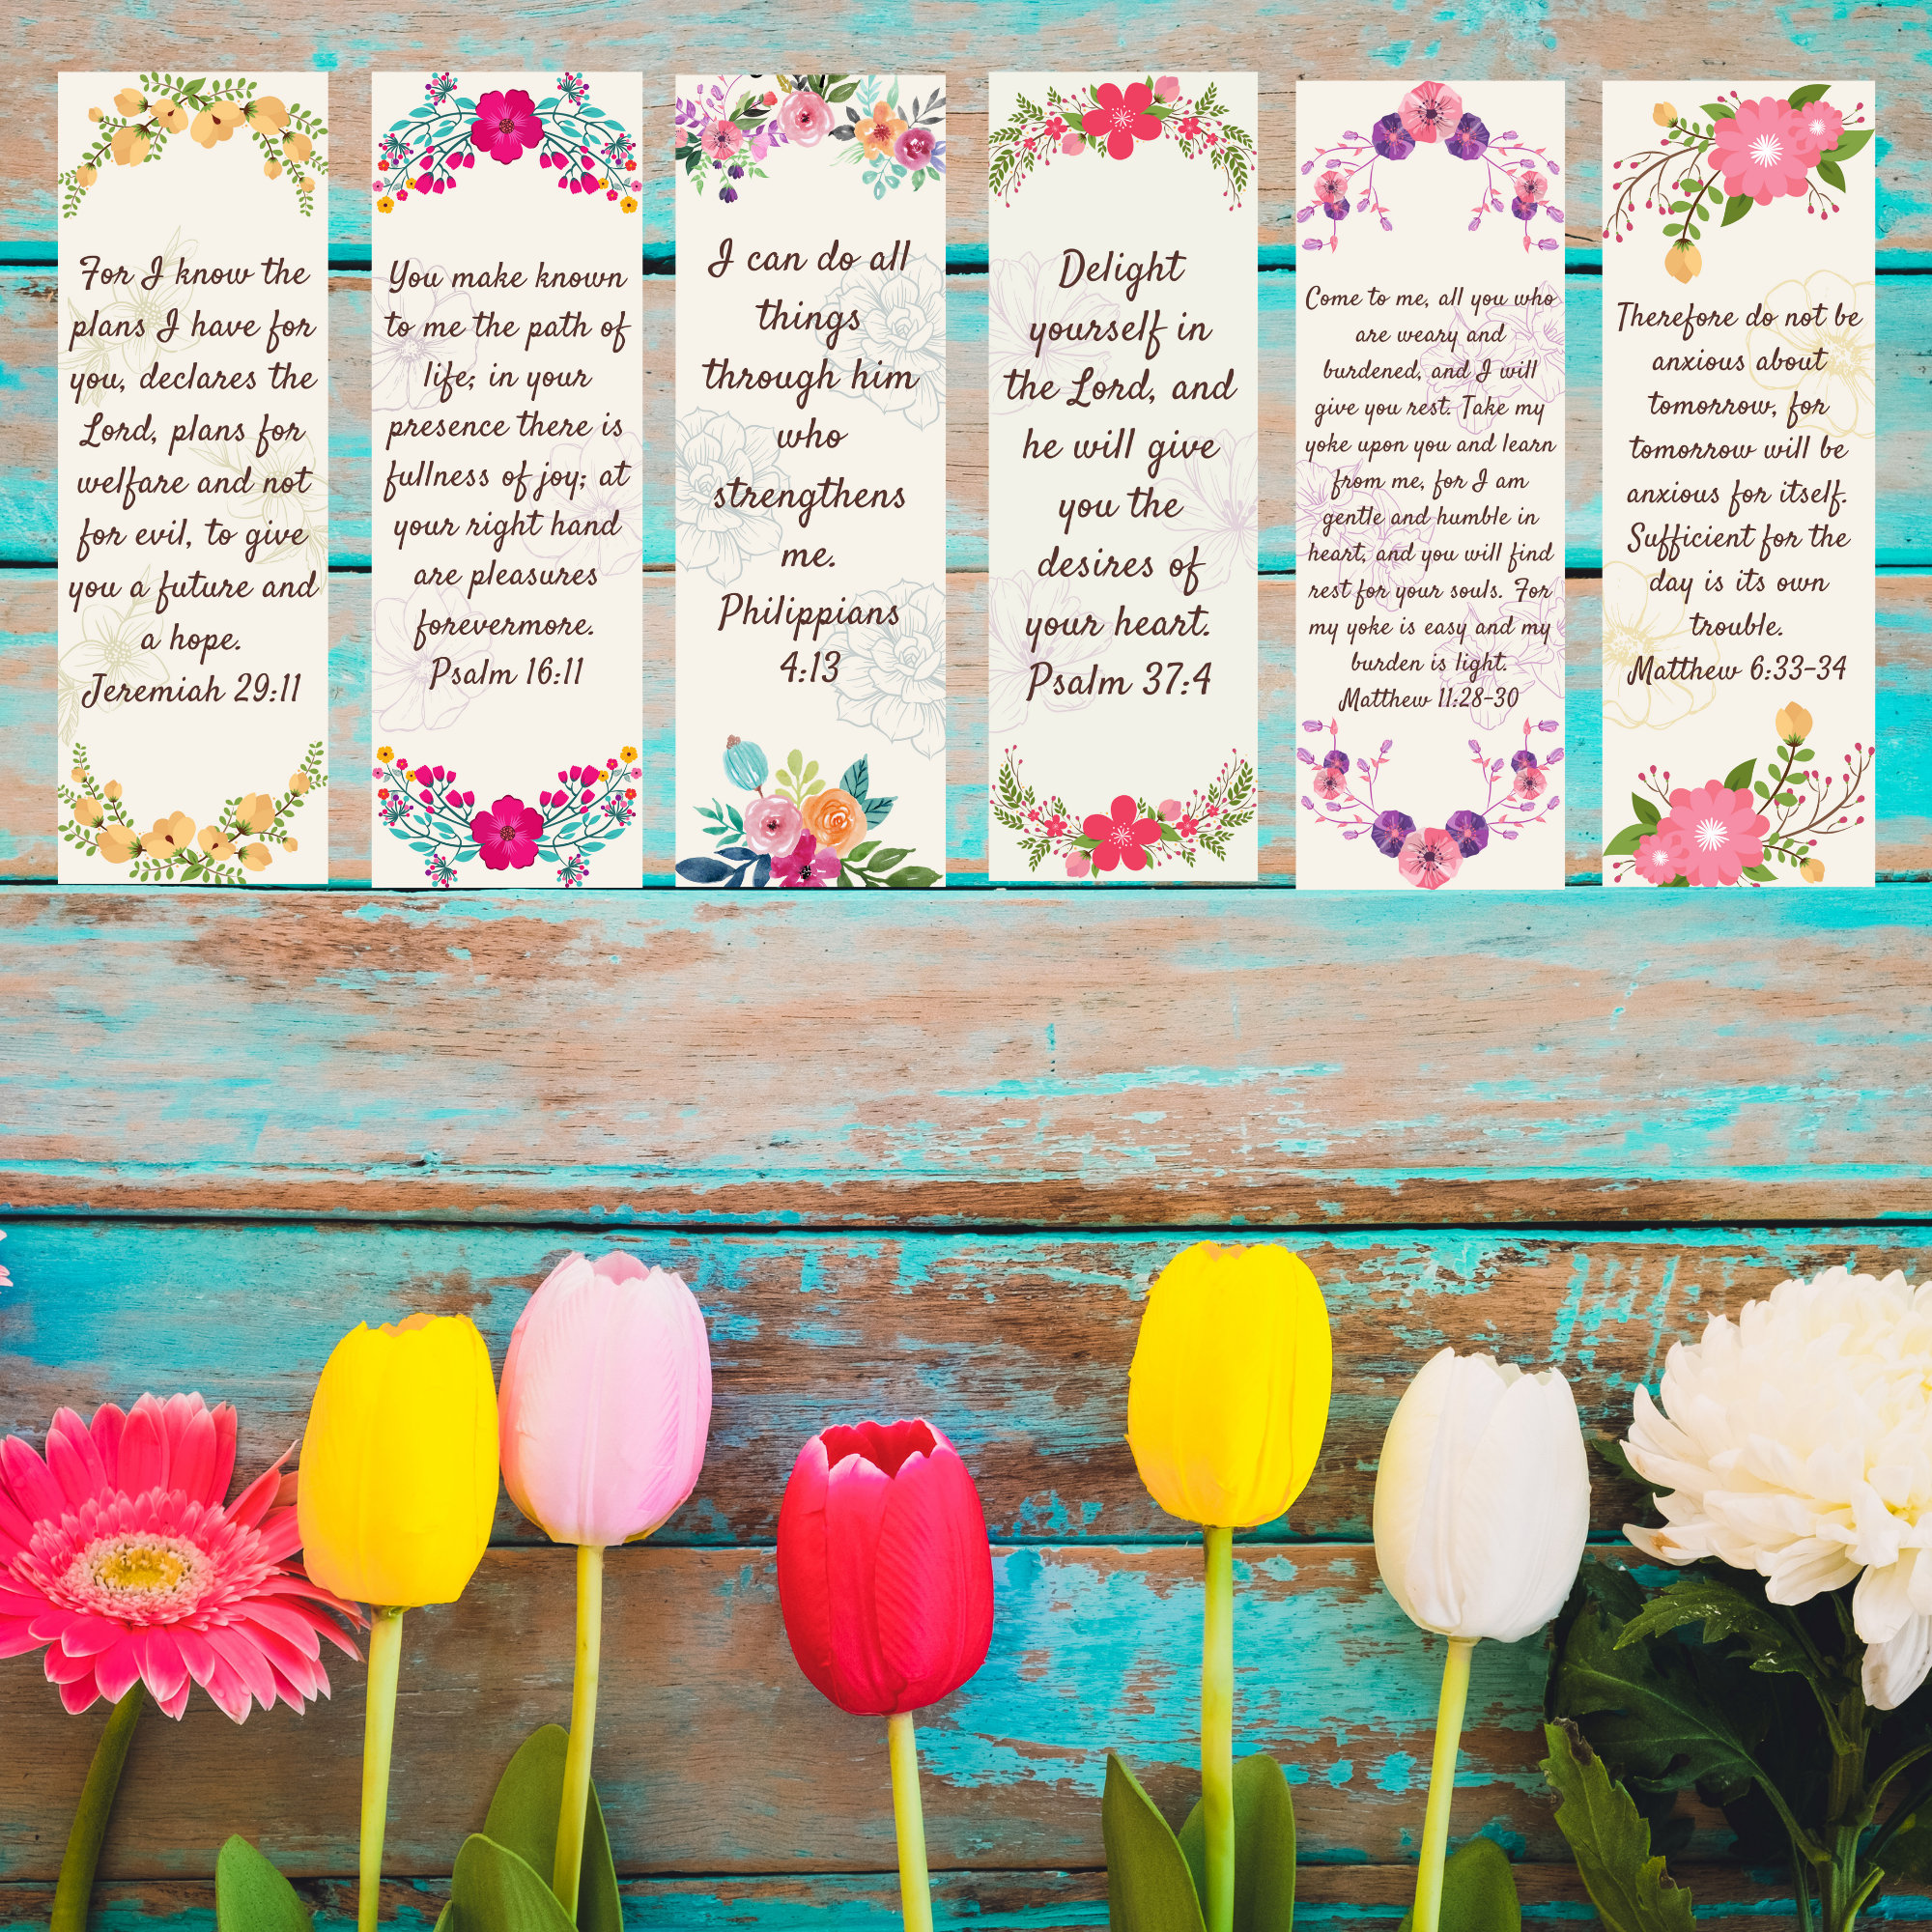 For I know the
plans I have for
you, declares the
Lord, plans for
welfare and not
for evil, to give
you a future and
a hope.
Jeremiah 29:11
You make known
to me the path of
life; in your
presence there is
fullness of joy; at
your right hand
are pleasures
forevermore.
Psalm 16:11
I can do all
things
through him
who
strengthens
me.
Philippians
4:13
Delight
yourself in
the Lord, and
he will give
you the
desires of
your heart.
Psalm 37:4
Come to me, all you who
are weary and
burdened, and I will
give you rest. Take my
yoke upon you and learn
from me, for I am
gentle and humble in
heart, and you will find
rest for your souls. For
my yoke is easy and my
burden is light.
Matthew 11:28-30
Therefore do not be
anxious about
tomorrow, for
tomorrow will be
anxious for itself.
Sufficient for the
day is its own
trouble.
Matthew 6:33-34